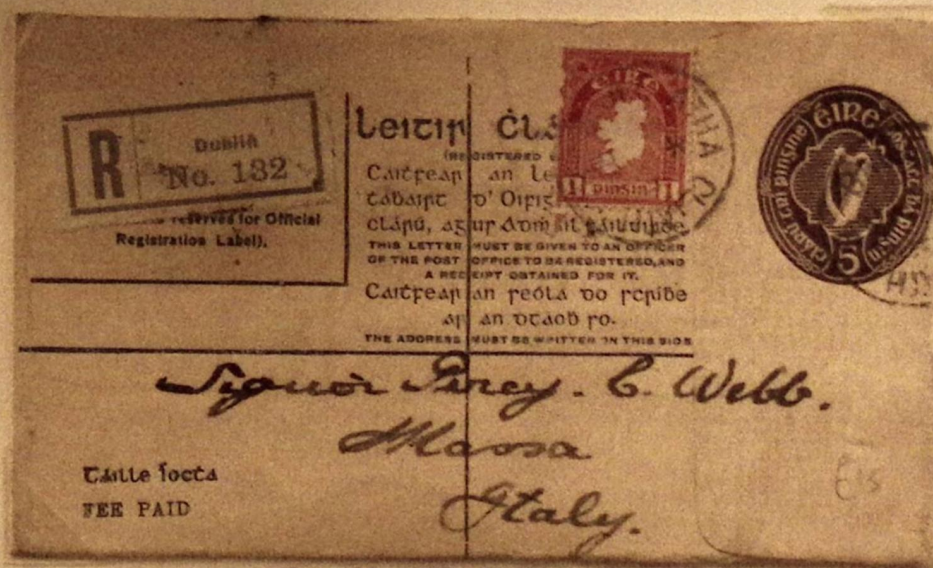 R
Dublin
No. 132
reserved for Official
Registration Label).
Leitir Clá
(REGISTERED
Caitfear an Le
tabairt d' Oifig
clárú, agus admáil
THIS LETTER MUST BE GIVEN TO AN OFFICER
OF THE POST OFFICE TO BE REGISTERED, AND
A RECEIPT OBTAINED FOR IT.
Caitfear an seóla do scríbe
ar an dtaob so.
THE ADDRESS MUST BE WRITTEN ON THIS SIDE
éire
1 pinsin 1
ATHA CL
éire
5
Signor Percy. C. Webb.
Massa
Italy.
Táille íocta
FEE PAID